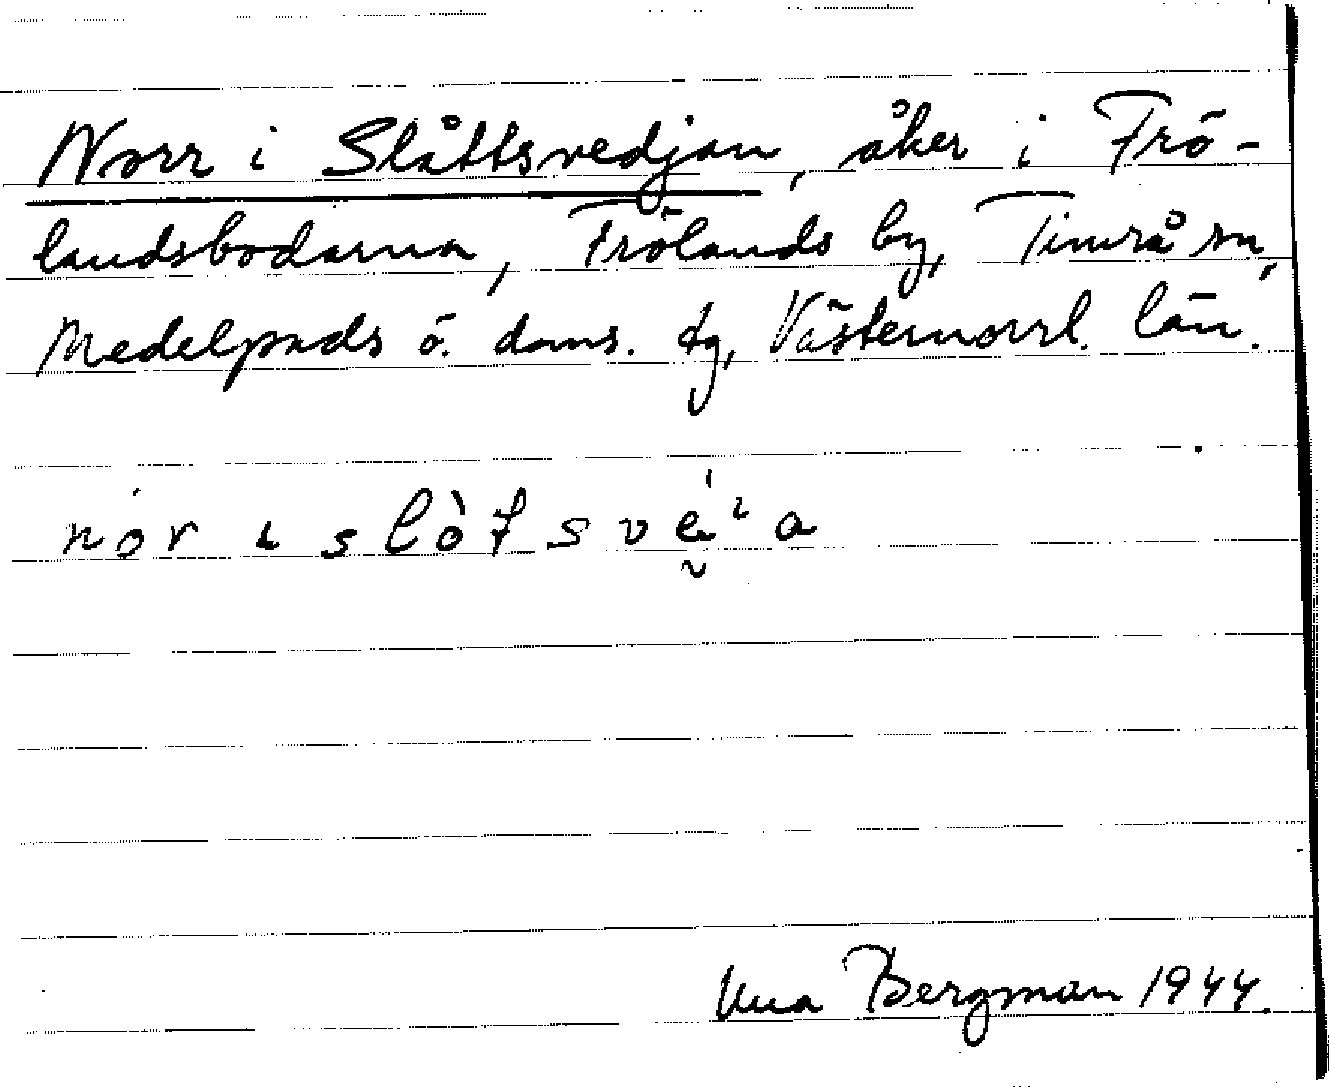 Norr i Slåttsvedjan, åker i Frö-
landsbodarna, Frölands by, Timrå sn,
Medelpads ö. doms. tg, Västernorrl. län.
nór ɩ slòt s vé ɩ a
Una Bergman 1944.